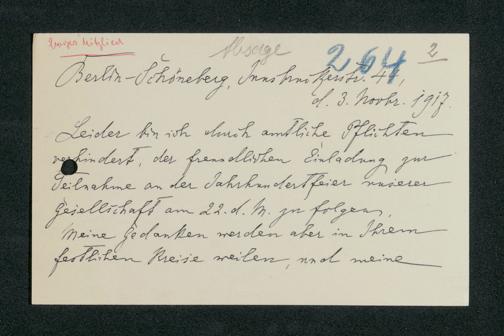 Absage
264
2
Berlin-Schöneberg, Innsbruckerstr. 41,
d. 3. Novbr. 1917.
Leider bin ich durch amtliche Pflichten
verhindert, der freundlichen Einladung zur
Teilnahme an der Jahrhundertfeier unserer
Gesellschaft am 22. d. M. zu folgen,
meine Gedanken werden aber in Ihrem
festlichen Kreise weilen, und meine